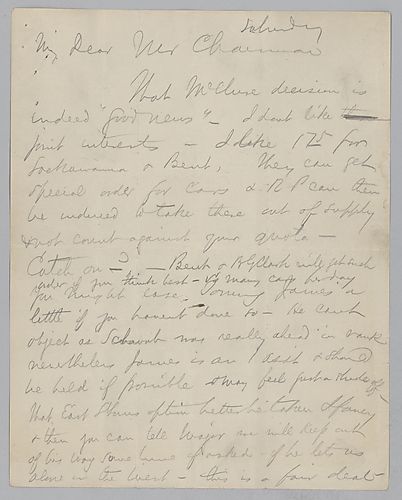 Saturday
My Dear Mr Chairman
That McClure decision is
indeed "good news" - I dont like
joint interests - I like 175 for
Lackawanna & Bent, They can get
special order for cars & R P can then
be induced to take these out of supply
& not count against your quota -
Catch on - ? - Bent & will get such
order if you think best - say many cars per day
You might James a
little if you havent done so - He cant
object as Schwab was really ahead in rank
nevertheless James is an & should
be held if possible & may feel just a shade off
That East option better be taken
& then you can tell Major we will keep out
of his way some time if asked - if he lets us
alone in the West - this is a fair deal -